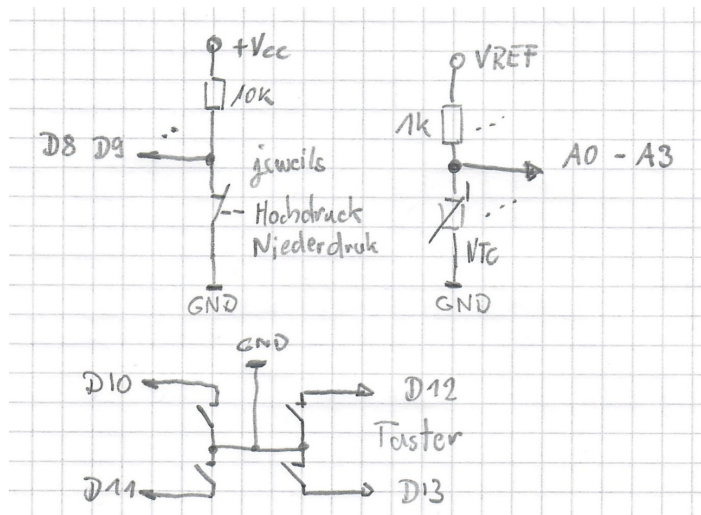 +Vcc
10k
D8 D9
jeweils
Hochdruck
Niederdruk
GND
VREF
1k
A0 - A3
NTC
GND
GND
D10
D12
Taster
D11
D13